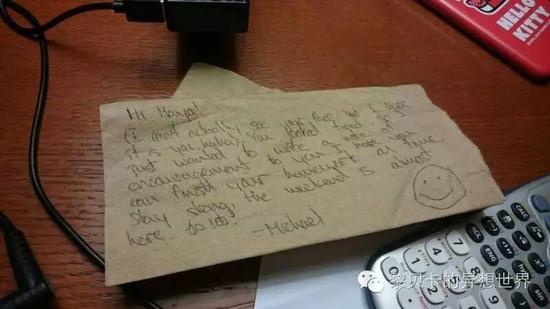 Hi Maya!
(I can't actually see your face but I hope
it is you haha) You looked tired so I
just wanted to write a note of
encouragement to you. I hope you
can finish your homework on time.
Stay strong, the weekend is almost
here.
-Michael
HELLO
KITTY
黎贝卡的异想世界